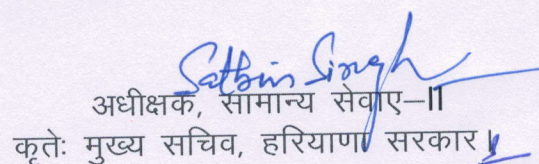 Satbir Singh
अधीक्षक, सामान्य सेवाए–II
कृतेः मुख्य सचिव, हरियाणा सरकार।